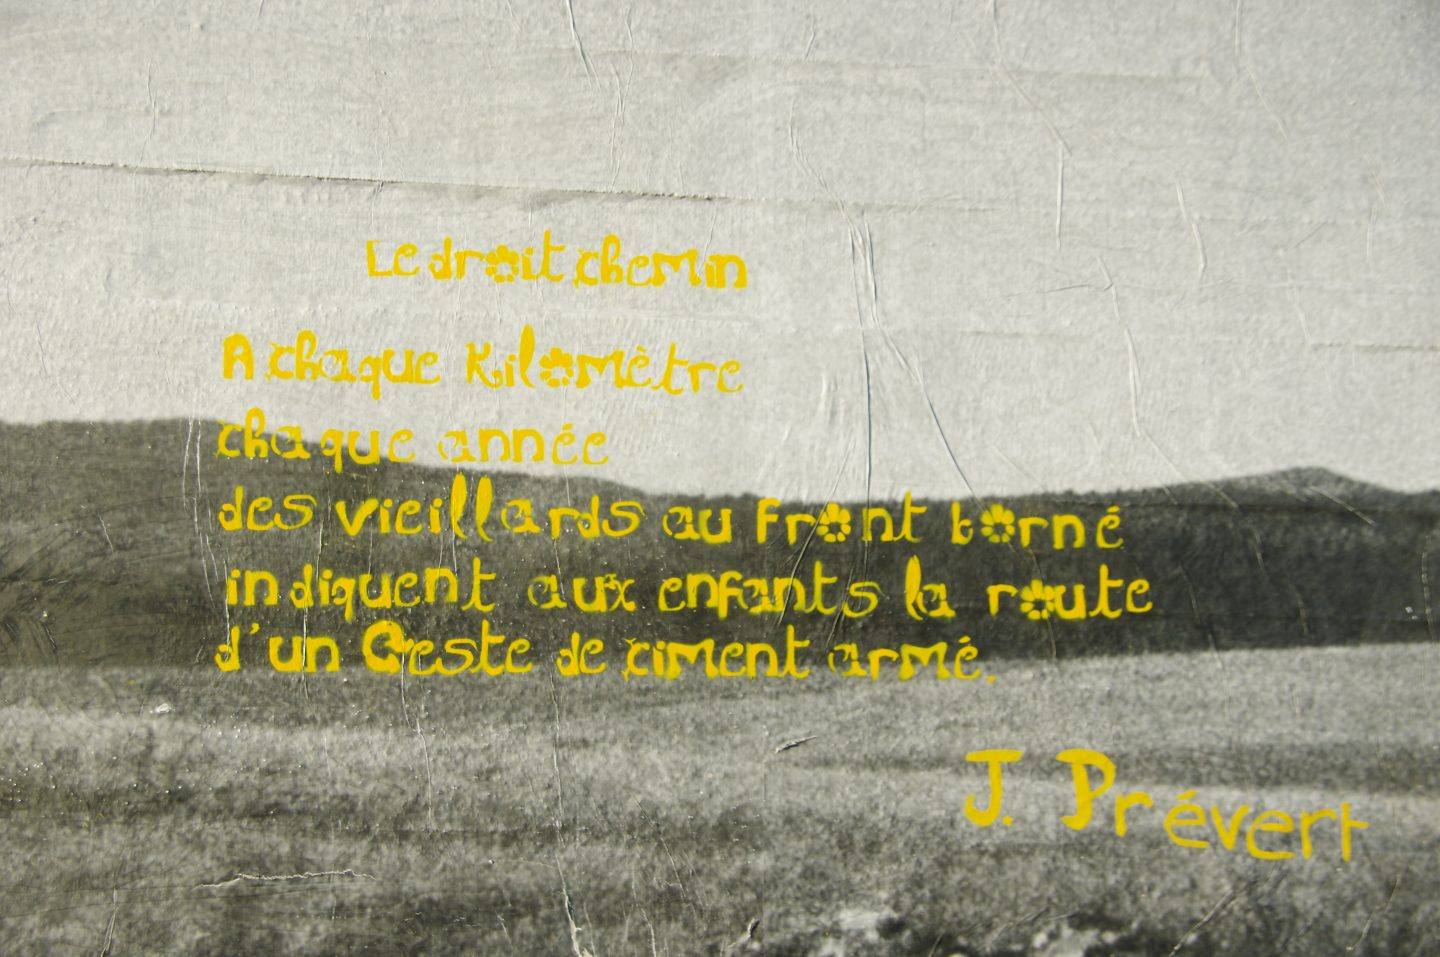 Le droit chemin
A chaque kilomètre
chaque année
des vieillards au front borné
indiquent aux enfants la route
d'un Geste de ciment armé.
J. Prévert